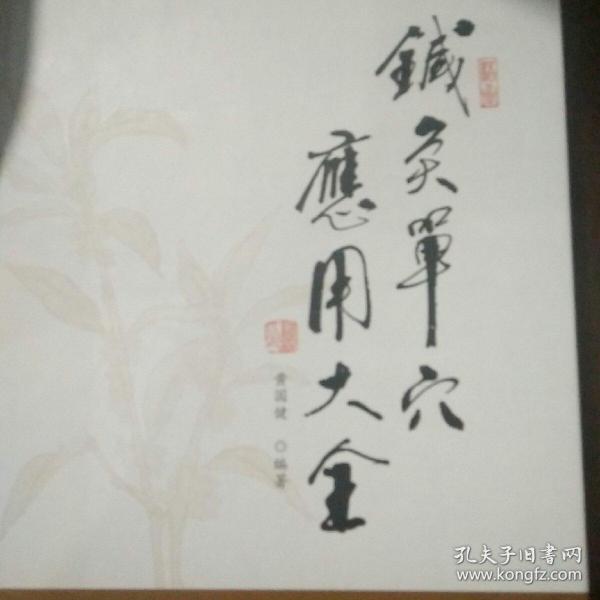 鍼灸單穴
應用大全
黄国健 ◎ 编著
孔夫子旧书网
www.kongfz.com